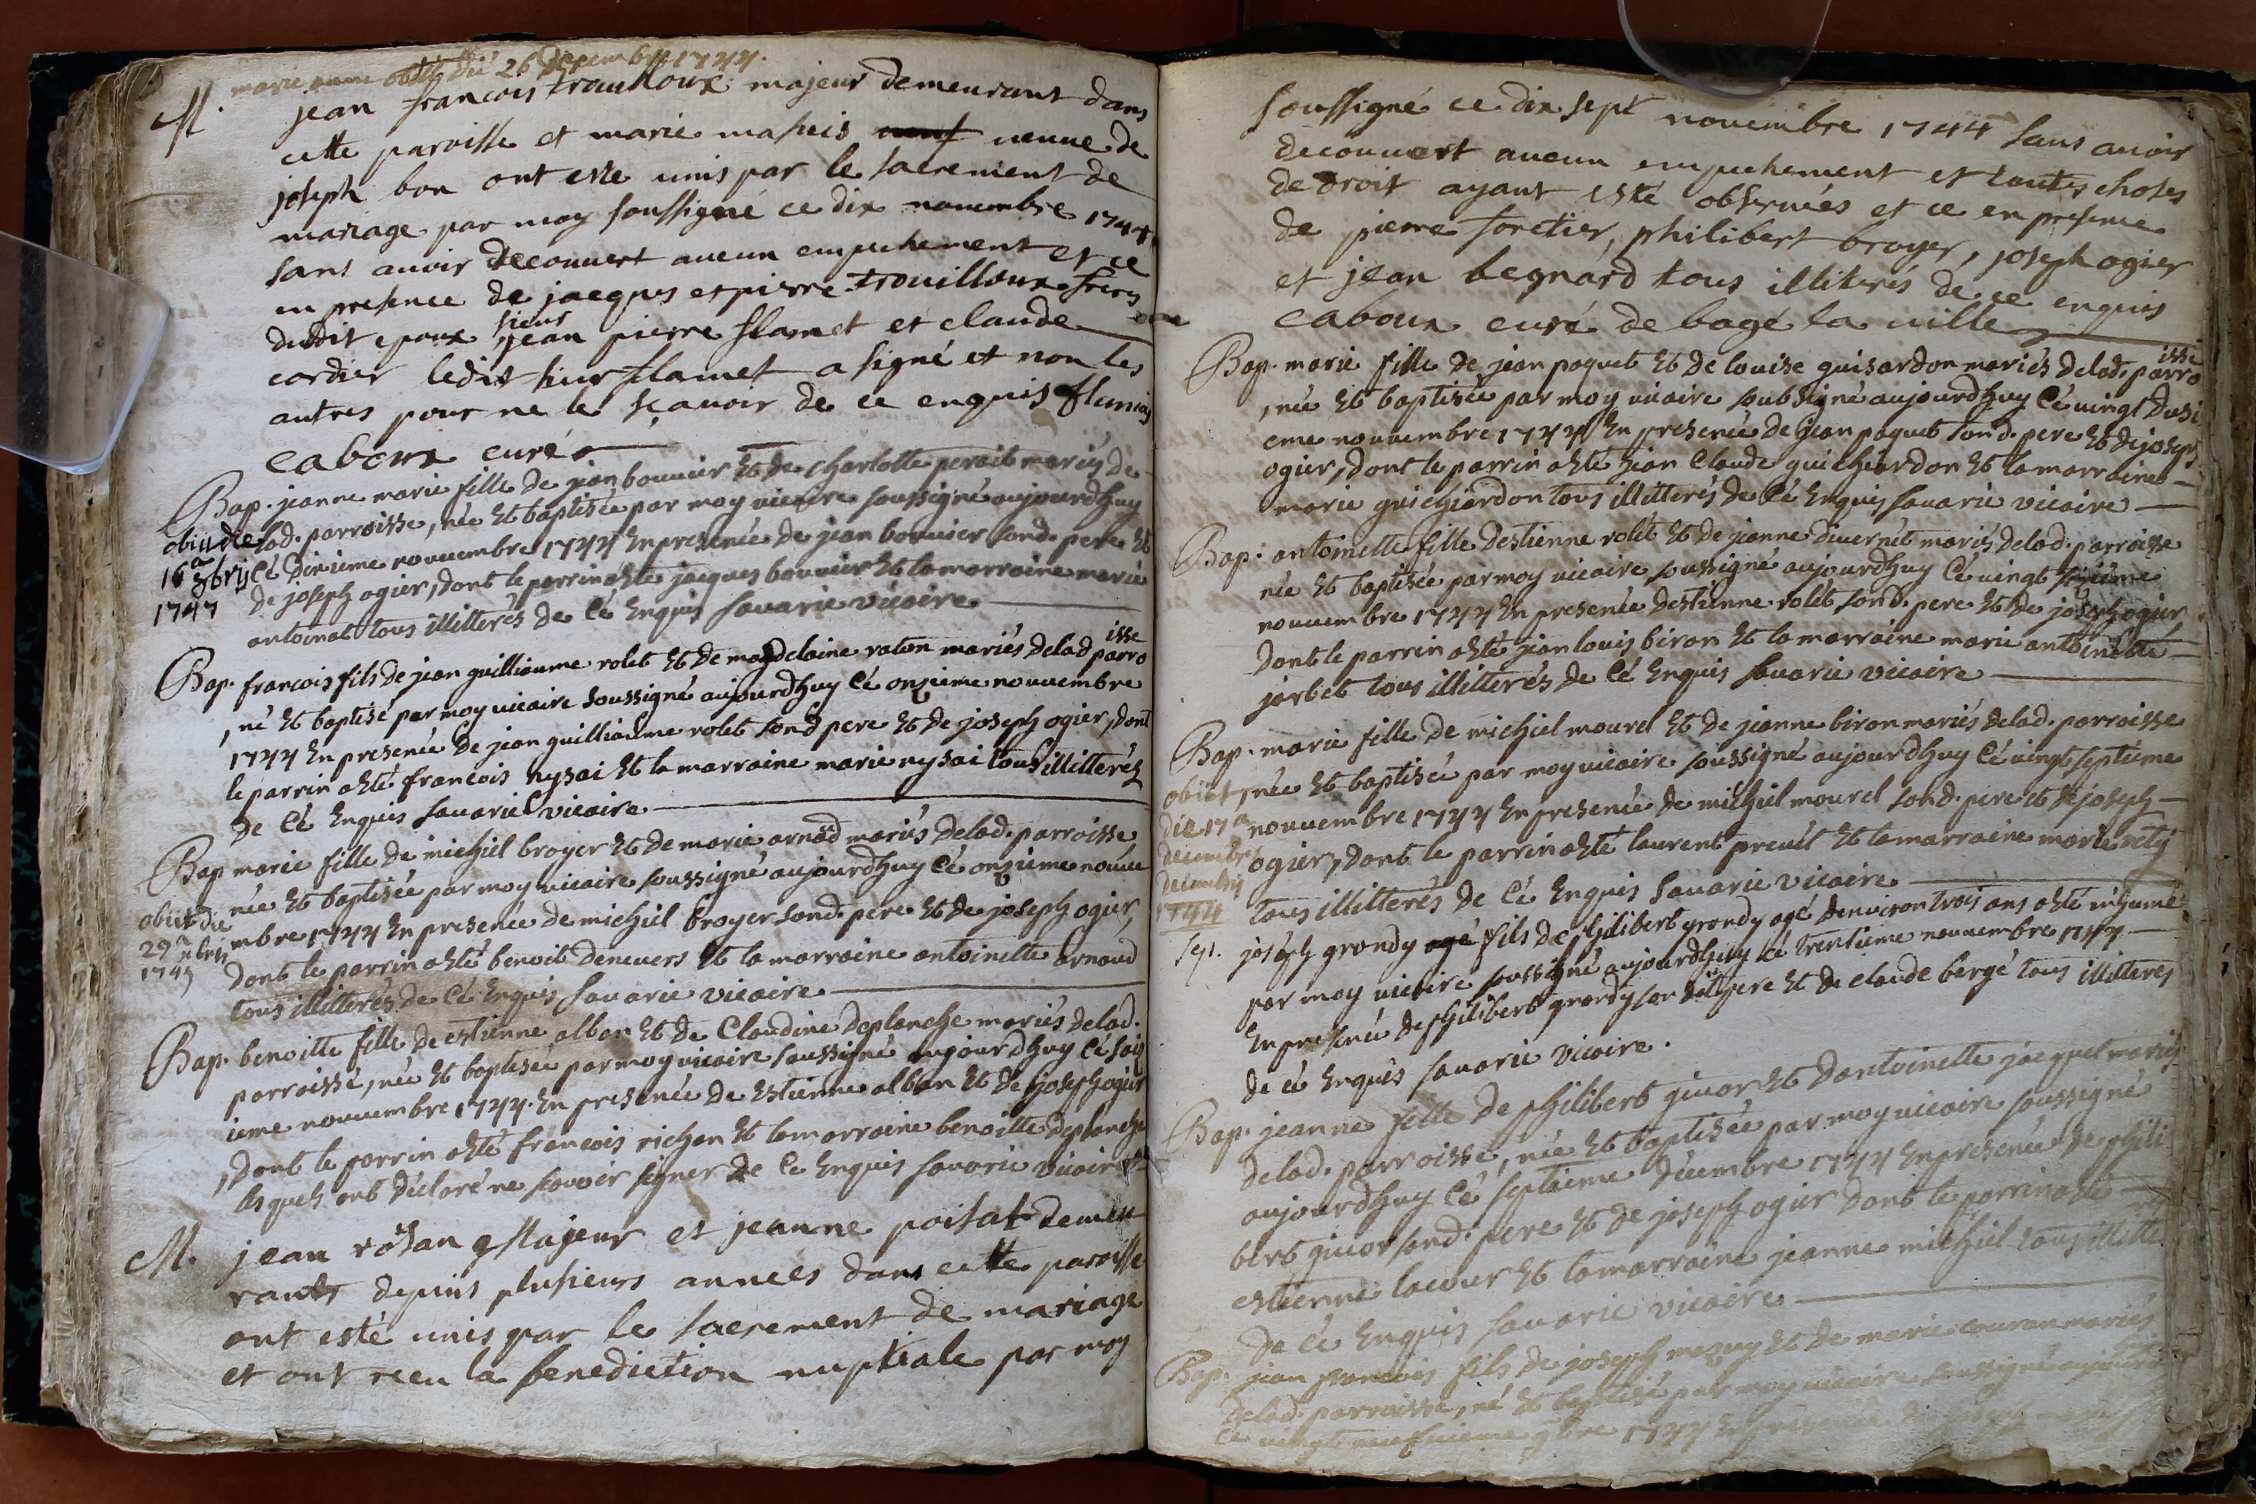 marie anne obiit die 26 decembris 1744.
M. jean francois trouilloux majeur demeurant dans
cette paroisse et marie mathieis veuve de
joseph bon ont esté unis par le sacrement de
mariage par moy soussigné ce dix novembre 1744
sans avoir decouvert aucun empechement et ce
en presence de jacques et pierre trouilloux freres
dudit epoux sieur jean pierre flamet et claude
cordier ledit sieur flamet a signé et non les
autres pour ne le sçavoir de ce enquis
caboux curé
Bap. jeanne marie fille de jean bouvier et de charlotte perait mariés de
lad. parroisse, née et baptisée par moy vicaire soussigné aujourdhuy
cé dixieme nouvembre 1744 en presence de jean bouvier sond. pere et
de joseph ogier, dont le parrin a esté jacques bouvier et la marraine marie
antoinat tous illitterés de cé enquis savarie vicaire
obiit die
16a 9bris
1747
Bap. francois fils de jean guilliaume rolet et de magdelaine raton mariés de lad parroisse
, né et baptisé par moy vicaire soussigné aujourdhuy cé onzieme nouvembre
1744 en presence de jean guilliaume rolet sond pere et de joseph ogier, dont
le parrin a esté francois nysai et la marraine marie nysai tous illitterés
de cé enquis savarie vicaire
Bap marie fille de michiel broyer et de marie arnod mariés de lad. parroisse
née et baptisée par moy vicaire soussigné aujourdhuy cé onzieme nouve
mbre 1744 en presence de michiel broyer sond. pere et de joseph ogier,
dont le parrin a esté benoit denevers et la marraine antoinette arnaud
tous illitterés de cé enquis savarie vicaire
obiit die
29a
Bap. benoitte fille de estienne alban et de claudine deplanche mariés de lad.
parroisse, née et baptisée par moy vicaire soussigné aujourdhuy cé saiz
ieme nouvembre 1744. en presence de estienne alban et de joseph ogier
, dont le parrin a esté francois richon et la marraine benoitte deplanche
lesquels ont declaré ne scavoir signer de ce enquis savarie vicaire
M. jean majeur et jeanne poisat demeu
rants depuis plusieurs années dans cette paroisse
ont esté unis par le sacrement de mariage
et ont receu la benediction nuptiale par moy
soussigné ce dix sept novembre 1744 sans avoir
decouvert aucun empechement et toutes choses
de droit ayant esté observées et ce en presence
de pierre foretier, philibert broyer, joseph ogier
et jean begnard tous illiterés de ce enquis
caboux curé de bagé la ville
Bap. marie fille de jean paquet et de louise guisardon mariés de lad. parroisse
, née et baptisée par moy vicaire soubsigné aujourdhuy cé vingt dusi
eme nouvembre 1744 en presence de jean paquet sond. pere et de joseph
ogier, dont le parrin a esté jean claude guichiardon et la marraine
marie guichiardon tous illitterés de cé enquis, savarie vicaire
Bap. antoinette fille destienne rolet et de jeanne divernét mariés de lad. parroisse
née et baptisée par moy vicaire soussigné aujourdhuy cé vingt
nouvembre 1744 en presence destienne rolét sond. pere et de joseph ogier,
dont le parrin a esté jean louis biron et la marraine marie antoinette
jarbet tous illitterés de cé enquis savarie vicaire
Bap. marie fille de michiel mourel et de jeanne biron mariés de lad. parroisse
, née et baptisée par moy vicaire soussigné aujourdhuy cé vingt septieme
nouvembre 1744 en presence de michiel mourel sond. pere et de joseph
ogier, dont le parrin a esté laurent preuit et la marraine marie
tous illitterés de cé enquis savarie vicaire
obiit
die 17a
decembris
1744
Sep. joseph grondy fils de philibert grondy agé denviron trois ans a esté inhumé
par moy vicaire soussigné aujourdhuy cé trentieme nouvembre 1744
en presence de philibert grondy son dit pere et de claude bergé tous illitteres
de cé enquis savarie vicaire.
Bap. jeanne fille de philibert givor et dantoinette jacquet mariés
de lad. parroisse, née et baptisée par moy vicaire soussigné
aujourdhuy cé septieme décembre 1744 en presence de phili
bert givor sond. pere et de joseph ogier dont le parrin a esté
estienne lacour et la marraine jeanne michiel tous illitte
de cé enquis savarie vicaire
Bap. jean francois fils de joseph et de marie couran mariés
de lad. parroisse, né et baptisé par moy vicaire soussigné aujourd
ce 1744 en presence de